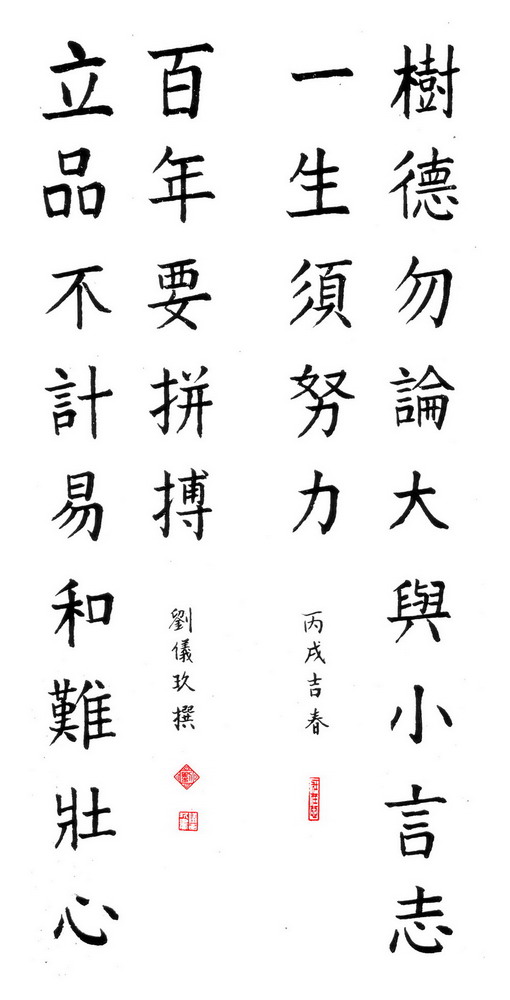 樹德勿論大與小言志
一生須努力
丙戌吉春
立品不計易和難壯心
百年要拼搏
劉儀玖撰